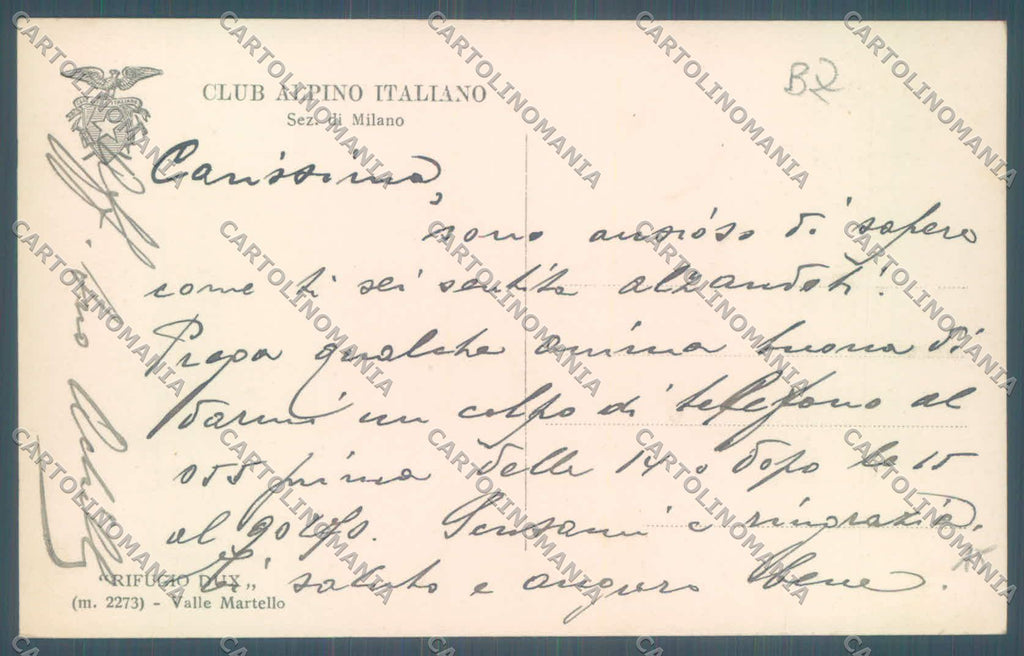 CLUB ALPINO ITALIANO
Sez. di Milano
B2
Carissima,
sono ansioso di sapere
come ti sei sentita alzandoti.
Prega qualche anima buona di
darmi un colpo di telefono al
055 prima delle 14 o dopo le 15
al 90
Scusami e ringrazia.
Ti saluto e auguro bene.
tuo
"RIFUGIO DUX„
(m. 2273) - Valle Martello
CARTOLINOMANIA